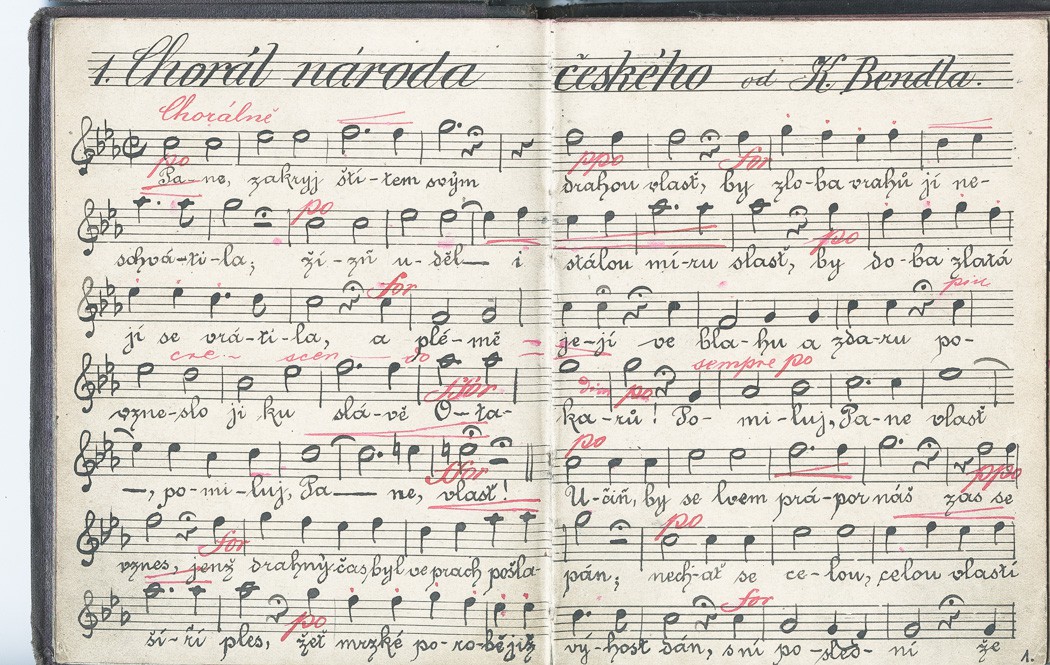 1. Chorál národa českého od K. Bendla.
Chorálně
po ppo for
Pa-ne, zakryj ští-tem svým drahou vlasť, by zlo-ba vrahů jí ne-
po po
schvá-ti-la; ží-zň u-děl— i stálou mí-ru slasť, by do-ba zlatá
for piu
jí se vrá-ti-la, a plé-mě je-jí ve bla-hu a zda-ru po-
cre - scen - do sempre po
ffor dim po
vzne-slo ji ku slá-vě O-ta- ka-rů! Po-mi-luj, Pa-ne vlasť
po
ffor ppo
—, po-mi-luj, Pa— ne, vlasť! U-čiň, by se lvem prá-por náš zas se
for po
vznes, jenž drahný čas byl ve prach pošla- pán; nech-ať se ce-lou, celou vlastí
po for
ší-ří ples, žeť mrzké po-robě již vý-hosť dán, s ní po-sled-ní že
1.